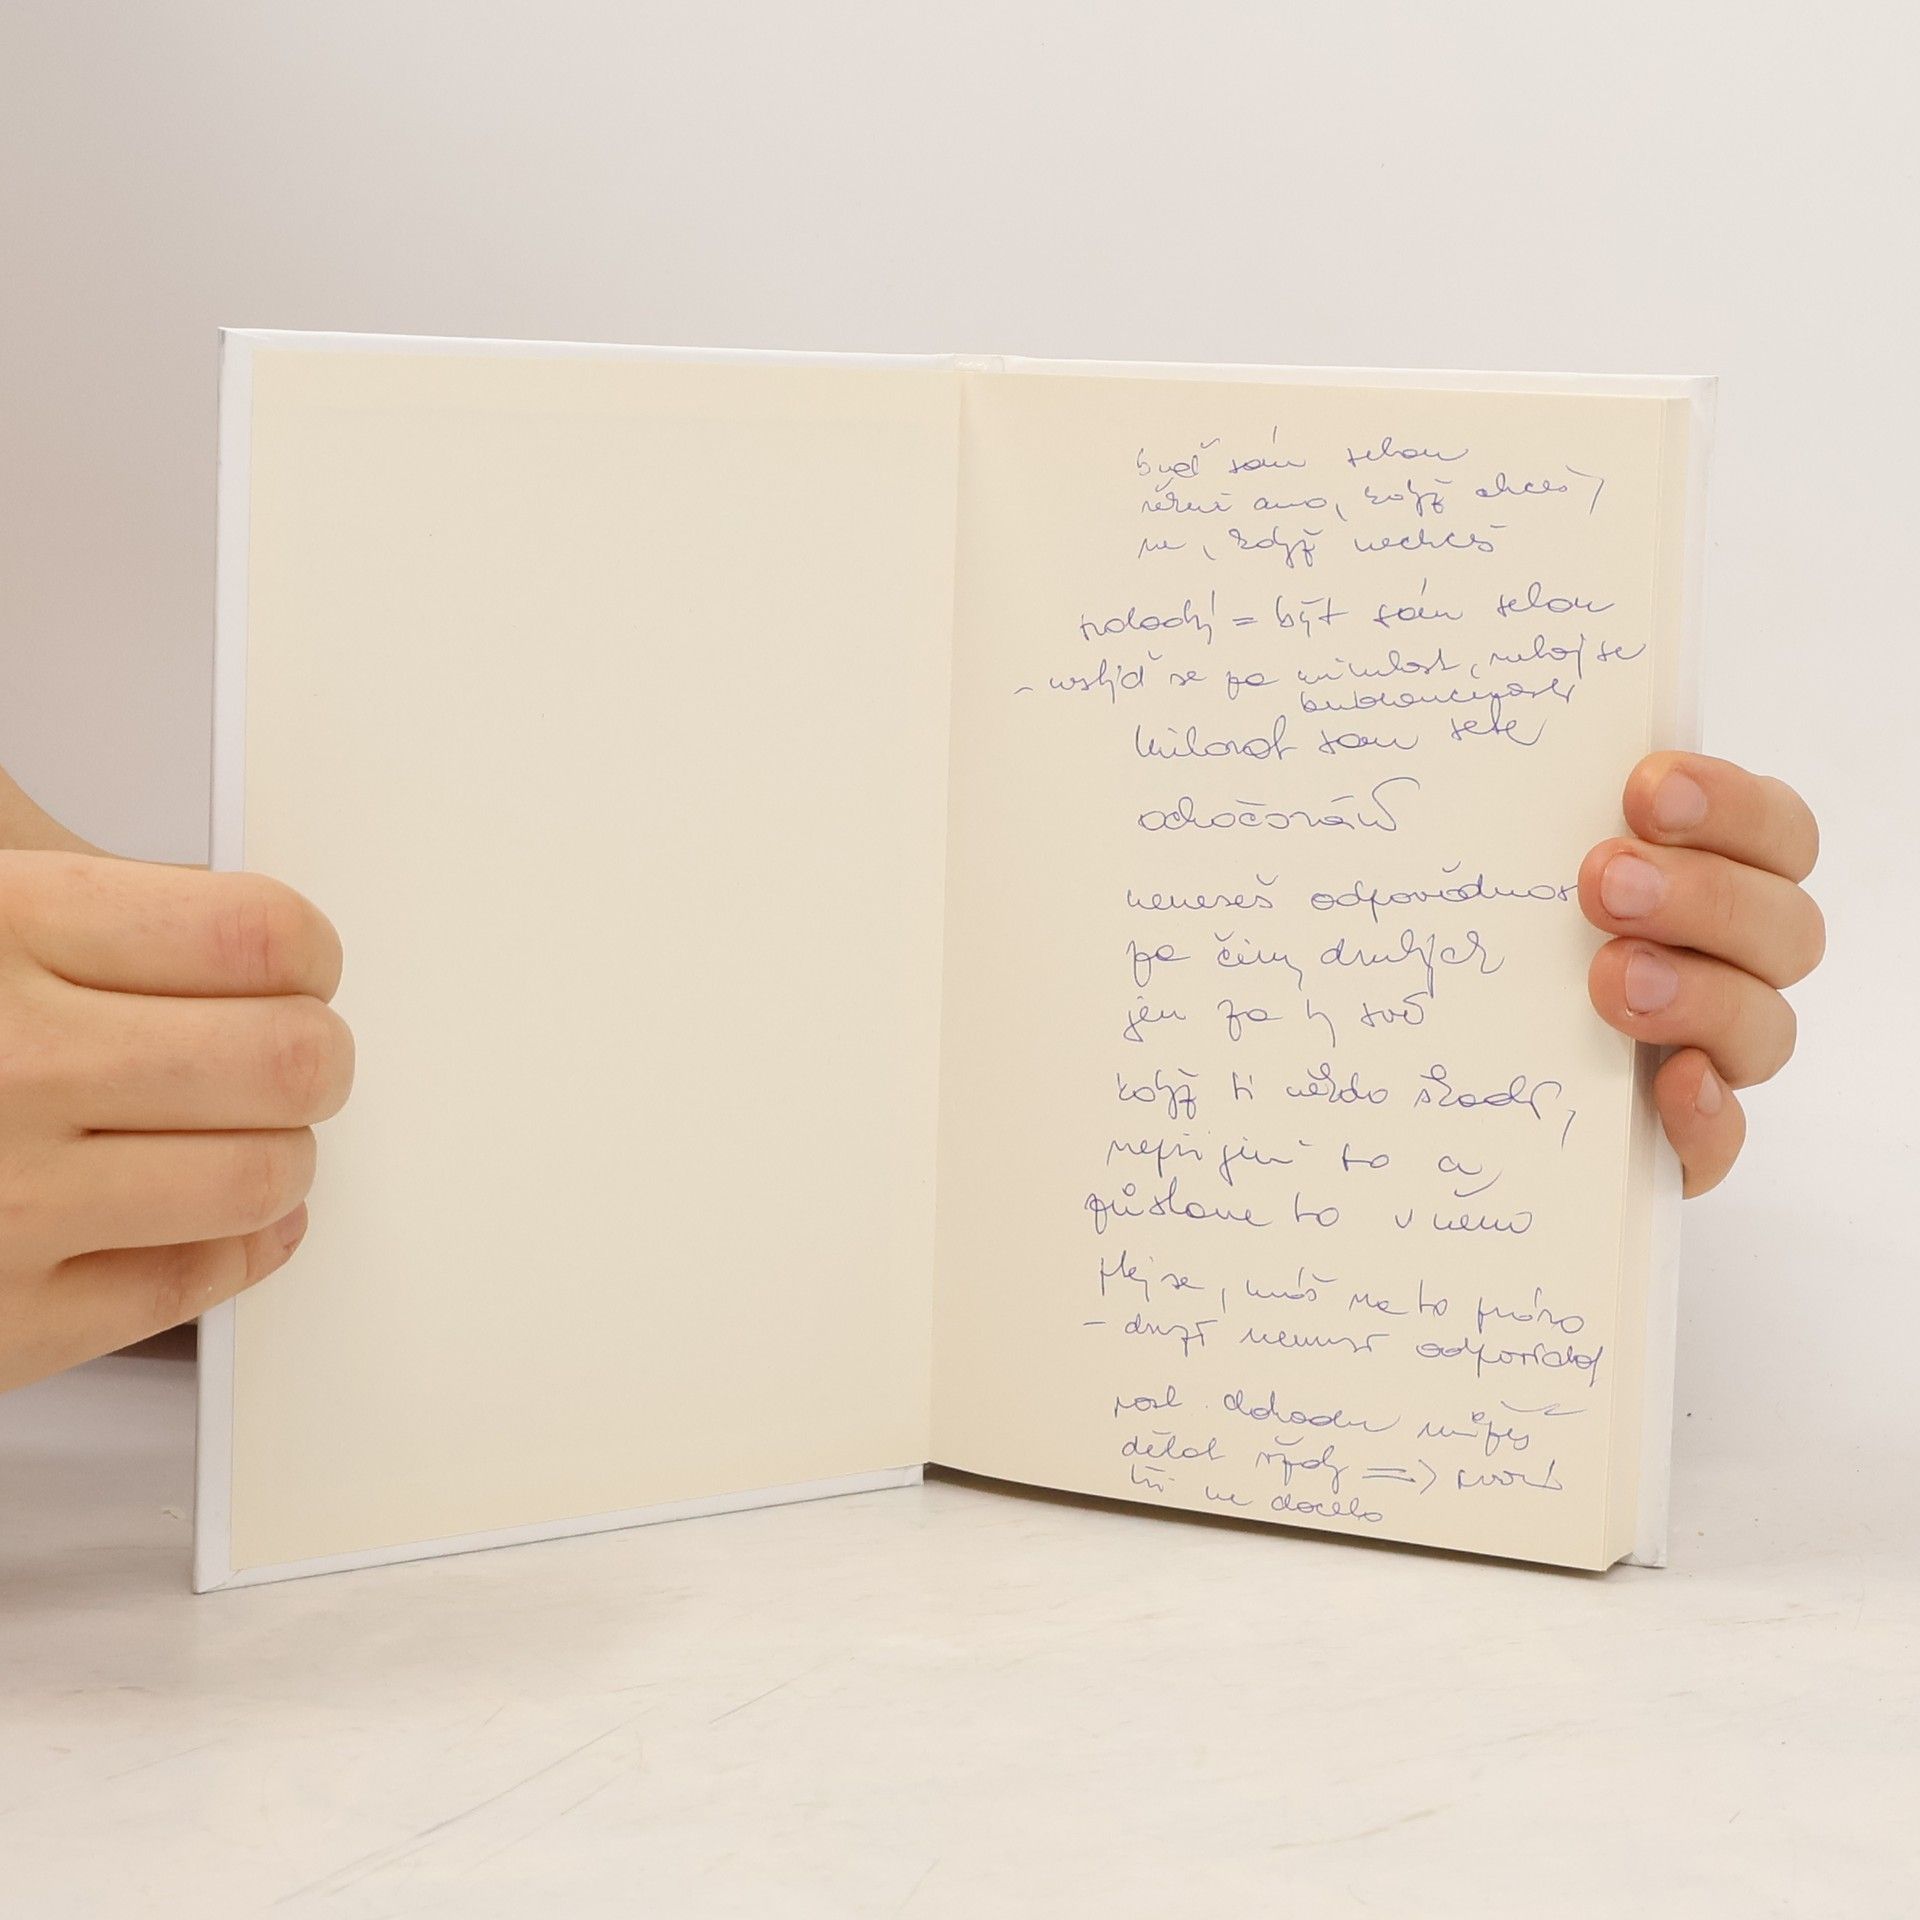 buď sám sebou
řekni ano, když chceš,
ne, když nechceš
svobodný = být sám sebou
- nestyď se za minulost, neboj se
budoucnosti
milovat sám sebe
ochočování
neneseš odpovědnost
za činy druhých
jen za ty své
když ti někdo škodí,
nepřijmi to a
zůstane to v něm
ptej se, máš na to právo
- druzí nemusí odpovídat
dohodu můžeš
dělat vždy =>
ne docela